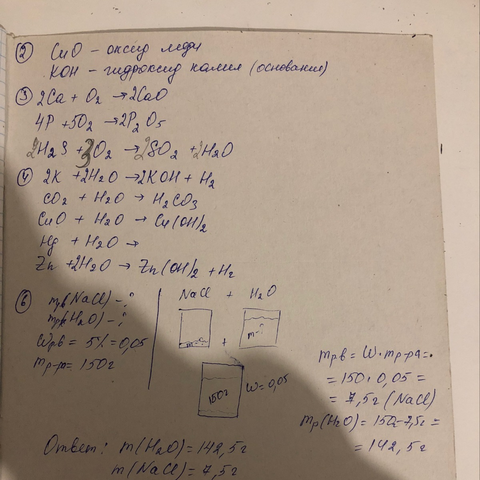 ② CuO – оксид меди
KOH – гидроксид калия (основания)
③ 2Ca + O₂ → 2CaO
4P + 5O₂ → 2P₂O₅
2H₂S + 3O₂ → 2SO₂ + 2H₂O
④ 2K + 2H₂O → 2KOH + H₂
CO₂ + H₂O → H₂CO₃
CuO + H₂O → Cu(OH)₂
Hg + H₂O →
Zn + 2H₂O → Zn(OH)₂ + H₂
⑥ mрв(NaCl) – ?
mрв(H₂O) – ?
Wрв = 5% = 0,05
mр-р = 150г
NaCl + H₂O
m-? + m-?
150г W=0,05
mрв = W · mр-ра =
= 150 · 0,05 =
= 7,5г (NaCl)
mр(H₂O) = 150 – 7,5г =
= 142,5г
Ответ: m(H₂O) = 142,5г
m(NaCl) = 7,5г